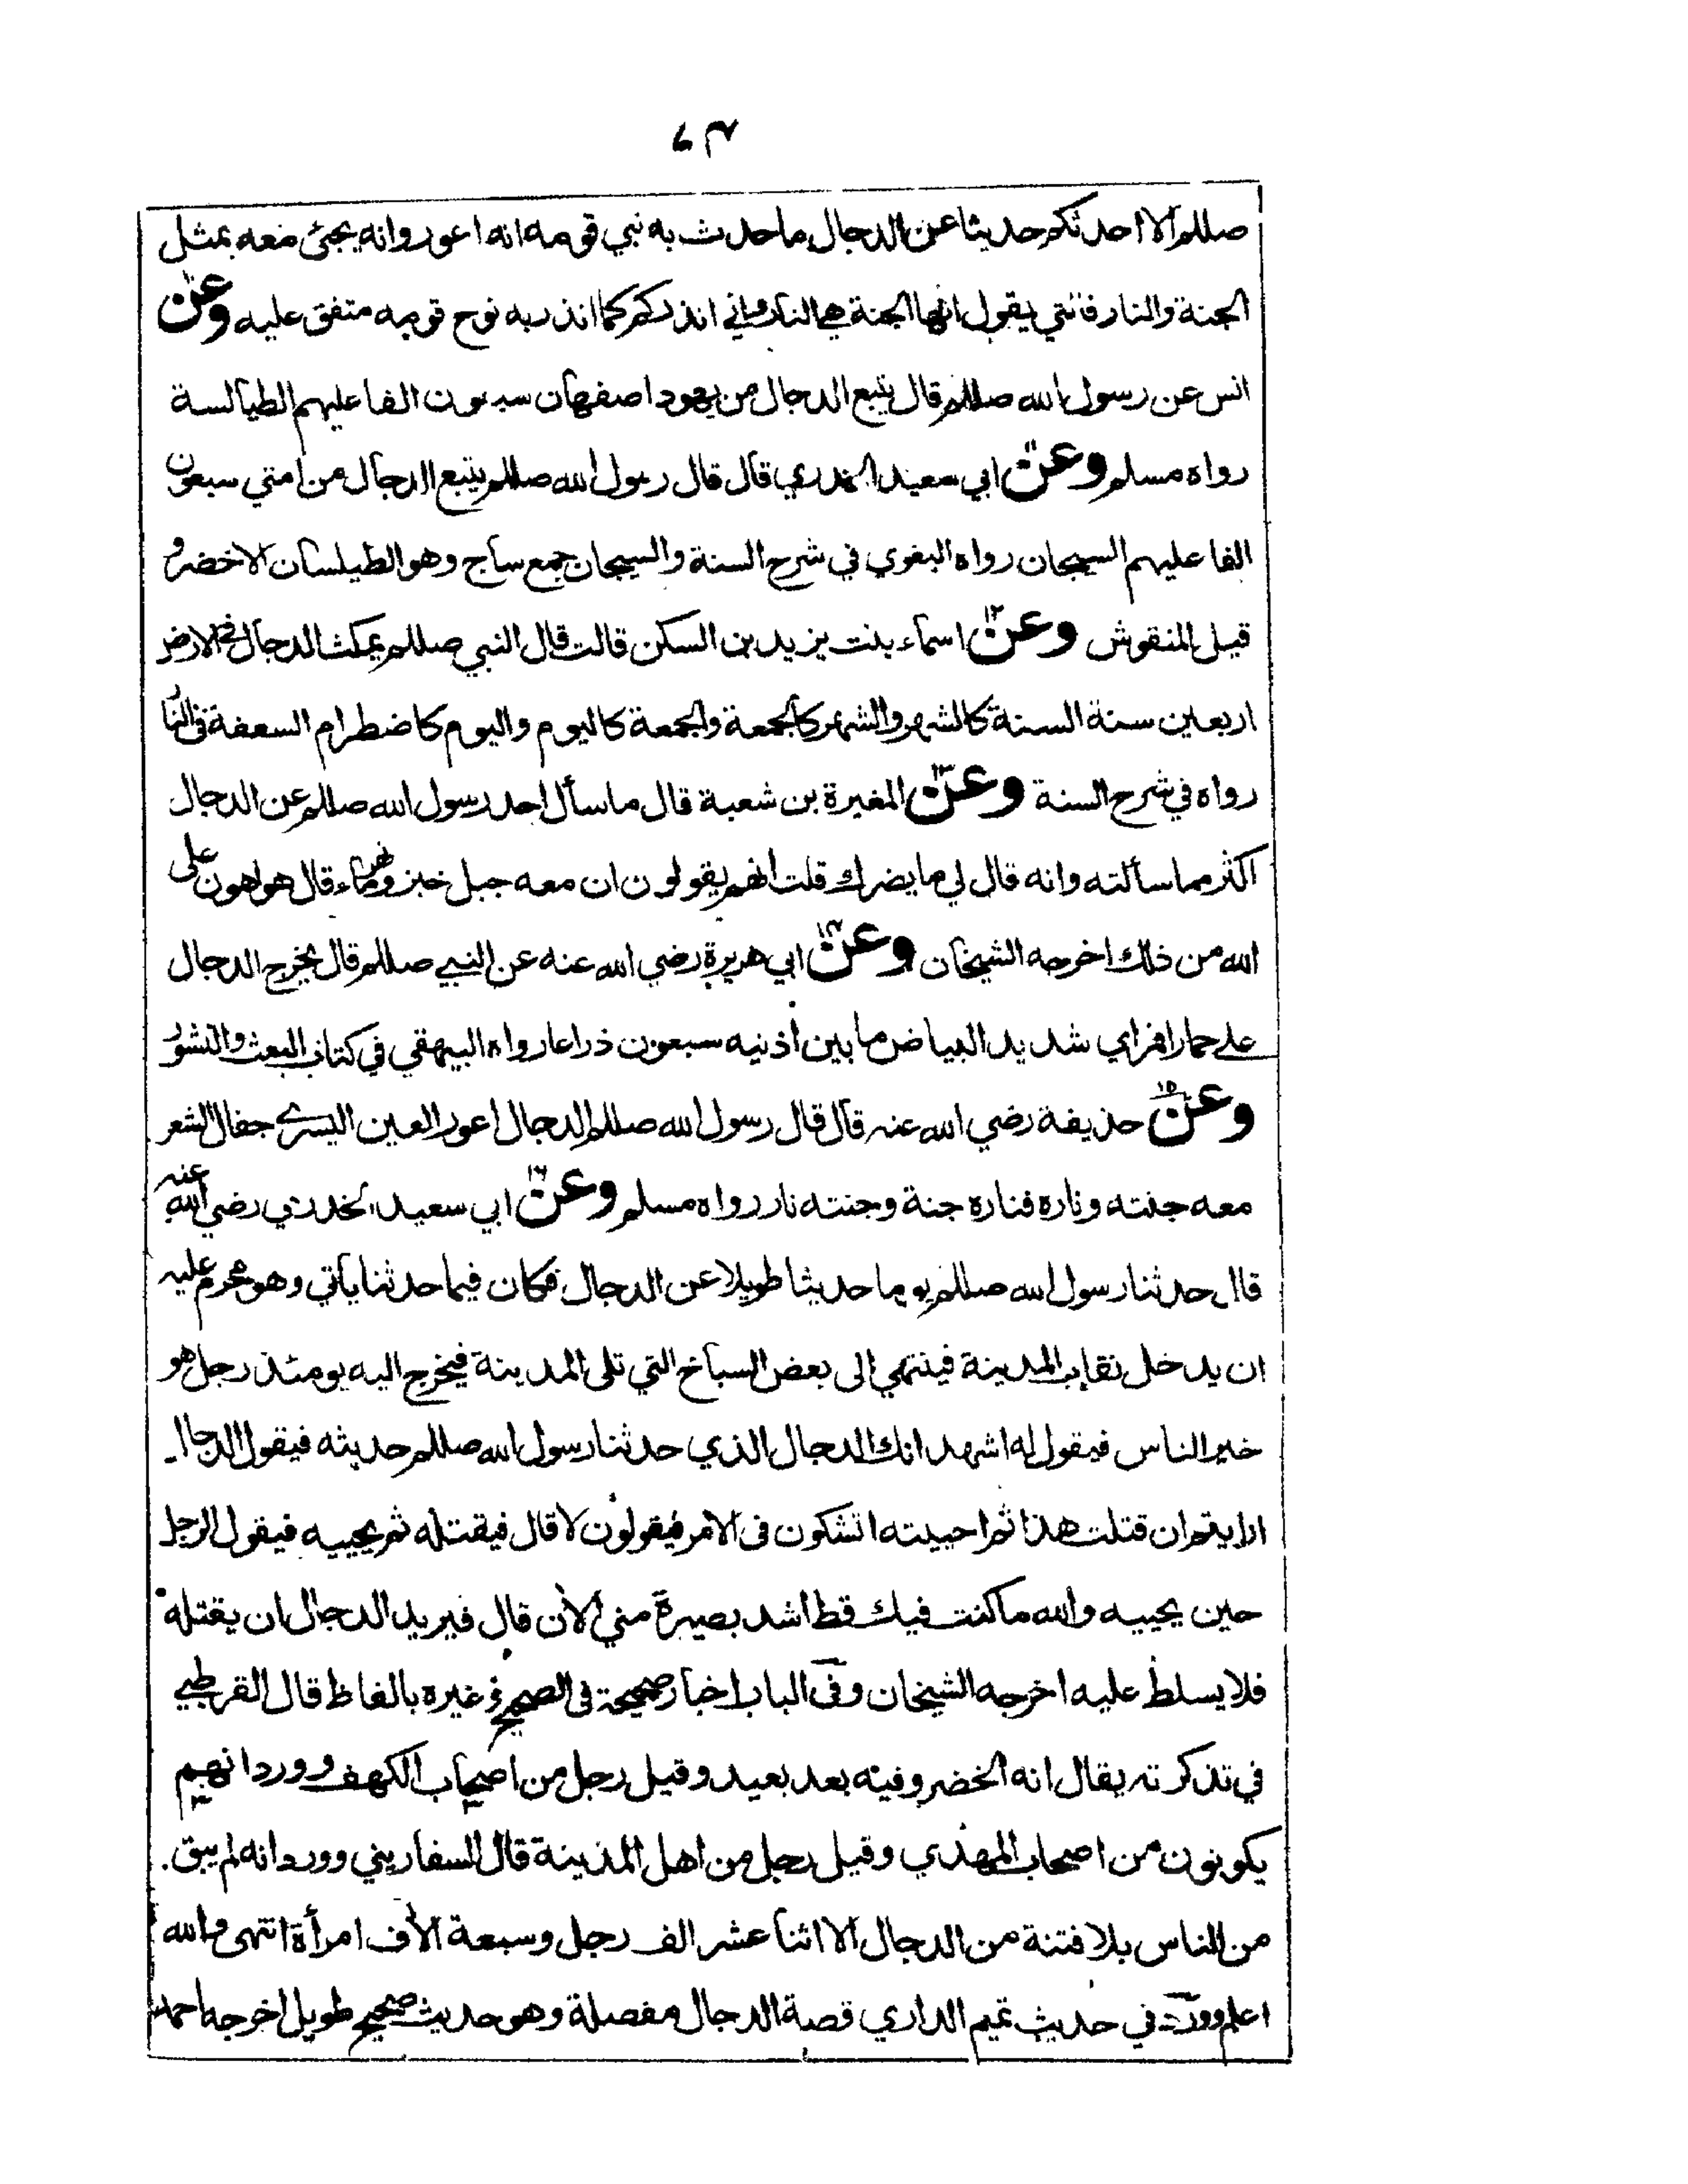 ٦٣
صللم الا احدثكم حديثا عن الدجال ما حدث به نبي قومه انه اعور وانه يجئ معه بمثل
الجنة والنار فالتي يقول انها الجنة هي النار واني انذركم كما انذر به نوح قومه متفق عليه وعن
انس عن رسول الله صللم قال يتبع الدجال من يهود اصفهان سبعون الفا عليهم الطيالسة
رواه مسلم وعن١١ ابي سعيد الخدري قال قال رسول الله صللم يتبع الدجال من امتي سبعون
الفا عليهم السيجان رواه البغوي في شرح السنة والسيجان جمع ساج وهو الطيلسان الاخضر و
قيل المنقوش وعن١٢ اسماء بنت يزيد بن السكن قالت قال النبي صللم يمكث الدجال في الارض
اربعين سنة السنة كالشهر والشهر كالجمعة والجمعة كاليوم واليوم كاضطرام السعفة في النار
رواه في شرح السنة وعن١٣ المغيرة بن شعبة قال ما سأل احد رسول الله صللم عن الدجال
اكثر مما سألته وانه قال لي ما يضرك قلت انهم يقولون ان معه جبل خبز ونهر ماء قال هو اهون على
الله من ذلك اخرجه الشيخان وعن١٤ ابي هريرة رضي الله عنه عن النبي صللم قال يخرج الدجال
على حمار اقمر اي شديد البياض ما بين أذنيه سبعون ذراعا رواه البيهقي في كتاب البعث والنشور
وعن١٥ حذيفة رضي الله عنه قال قال رسول الله صللم الدجال اعور العين اليسرى جفال الشعر
معه جنته وناره فناره جنة وجنته نار رواه مسلم وعن١٦ ابي سعيد الخدري رضي الله عنه
قال حدثنا رسول الله صللم يوما حديثا طويلا عن الدجال فكان فيما حدثنا يأتي وهو محرم عليه
ان يدخل نقاب المدينة فينتهي الى بعض السباخ التي تلى المدينة فيخرج اليه يومئذ رجل هو
خير الناس فيقول له اشهد انك الدجال الذي حدثنا رسول الله صللم حديثه فيقول الدجال
ارايتم ان قتلت هذا ثم احييته اتشكون فى الامر فيقولون لا قال فيقتله ثم يحييه فيقول الرجل
حين يحييه والله ما كنت فيك قط اشد بصيرة مني الأن قال فيريد الدجال ان يقتله
فلا يسلط عليه اخرجه الشيخان وفى الباب اخبار صحيحة فى الصحيح وغيره بالفاظ قال القرطبي
في تذكرته يقال انه الخضر وفيه بعد بعيد وقيل رجل من اصحاب الكهف وورد انهم
يكونون من اصحاب المهدي وقيل رجل من اهل المدينة قال السفاريني وورد انه لم يبق
من الناس بلا فتنة من الدجال الا اثنا عشر الف رجل وسبعة الأف امرأة انتهى والله
اعلم وورد في حديث تميم الداري قصة الدجال مفصلة وهو حديث صحيح طويل اخرجه احمد